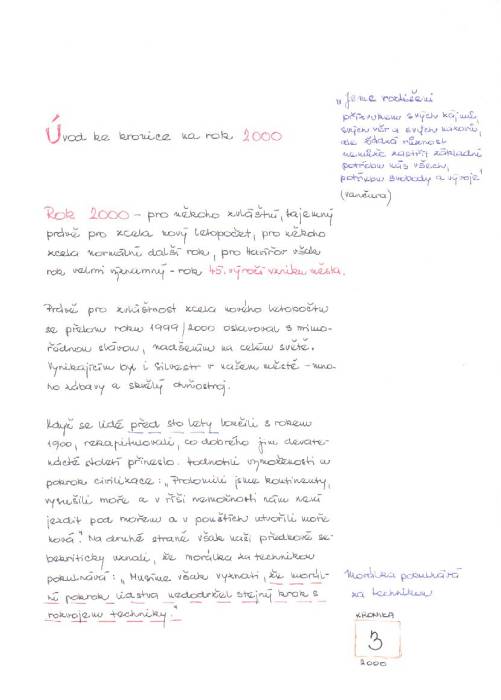 Úvod ke kronice na rok 2000
„Jsme rozlišeni
svých věr a svých názorů,
ale žádná různost
nemůže zastřít základní
potřebu nás všech,
potřebu svobody a vývoje“
(Vančura)
Rok 2000 – pro někoho zvláštní, tajemný
právě pro zcela nový letopočet, pro někoho
zcela normální další rok, pro Havířov však
rok velmi významný – rok 45. výročí vzniku města.
Právě pro zvláštnost zcela nového letopočtu
se přelom roku 1999/2000 oslavoval s mimo-
řádnou slávou, nadšením na celém světě.
Vynikajícím byl i Silvestr v našem městě – mno-
ho zábavy a skvělý ohňostroj.
Když se lidé před sto lety loučili s rokem
1900, rekapitulovali, co dobrého jim devate-
nácté století přineslo. Hodnotili vymoženosti a
pokrok civilizace: „Prolomili jsme kontinenty,
vysušili moře a v říši nemožnosti nám není
jezdit pod mořem a v pouštích utvořili moře
nová.“ Na druhé straně však naši předkové se-
bekriticky uznali, že morálka za technikou
pokulhává: „Musíme však vyznati, že morál-
ní pokrok lidstva nedodržel stejný krok s
rozvojem techniky.“
Morálka pokulhává
za technikou
KRONIKA
3
2000